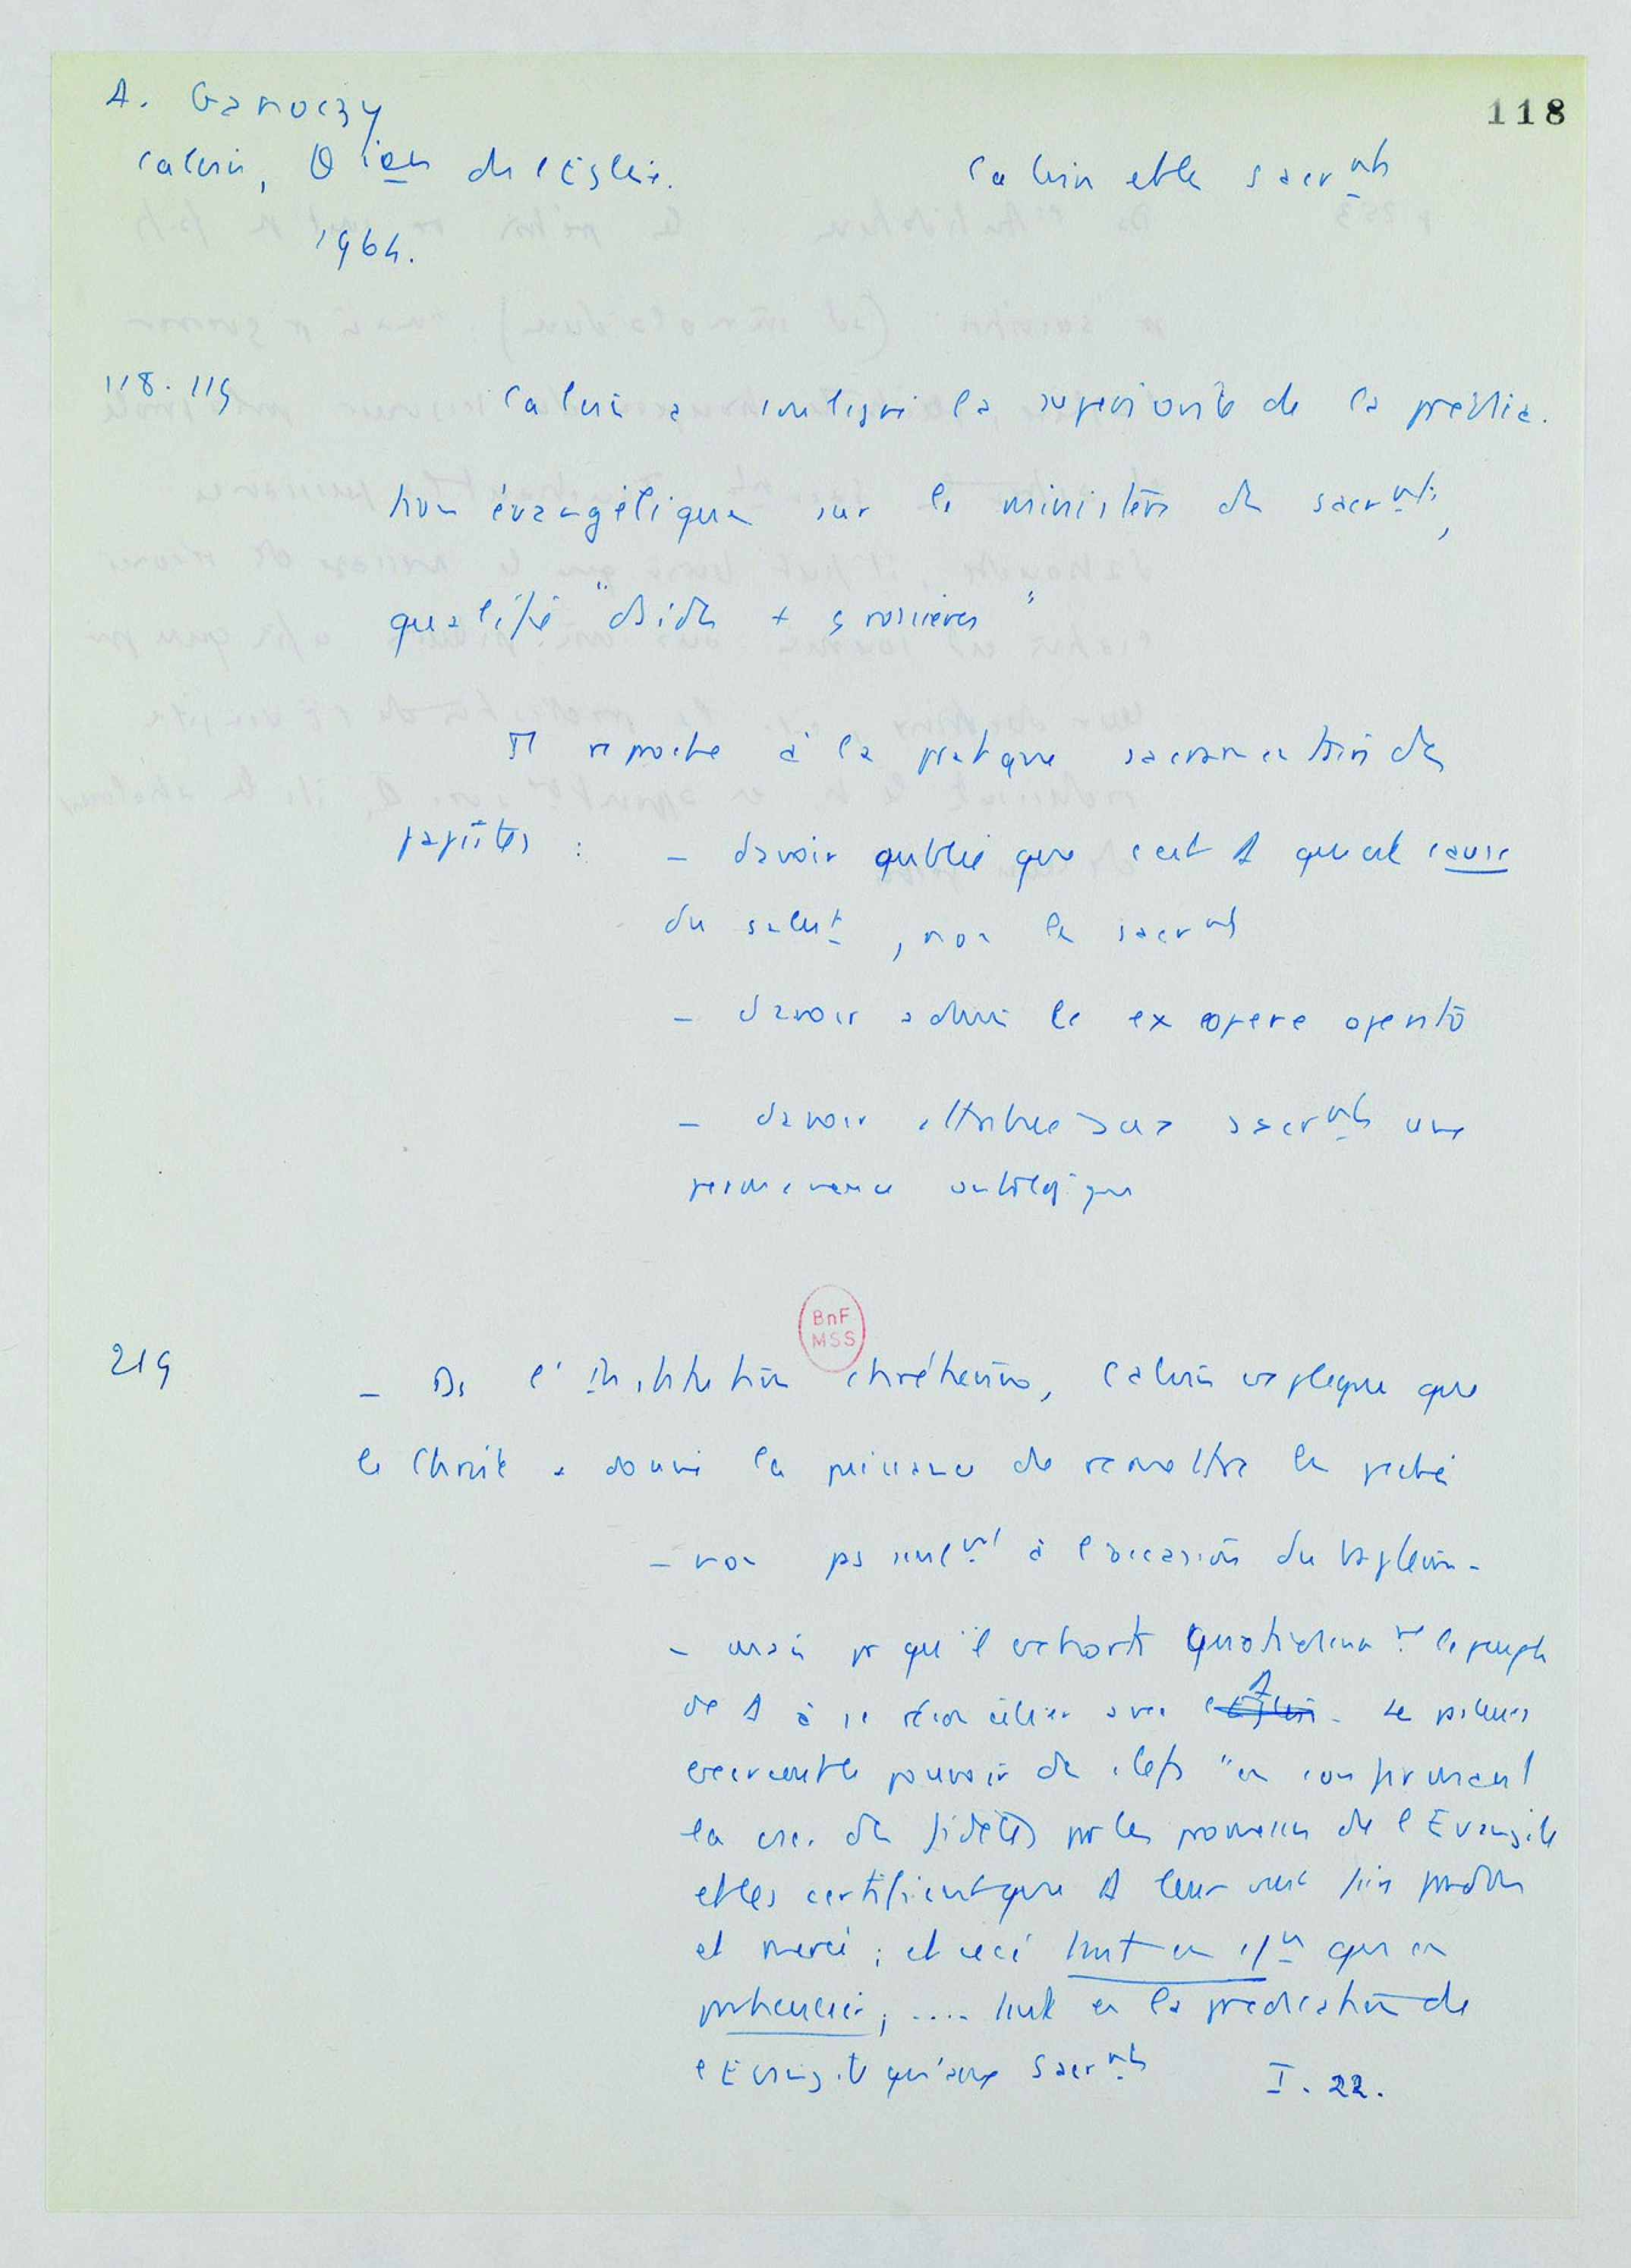 118
A. Ganoczy
Calvin, θ ien de l'Eglise.
Calvin et les sacrmts
1964.
118. 119
Calvin a souligné la supériorité de la prédica.
tion évangélique sur le ministère des sacrmts,
qualifié "d'aides + grossières"
Il reproche à la pratique sacramentaire des
papistes :
- d'avoir oublié que c'est Δ qui est cause
du salut, non les sacrmts
- d'avoir admis le ex opere operato
- d'avoir attribué aux sacrmts une
permanence ontologique
BnF
MSS
219
- Ds l'Institution chrétienne, Calvin explique que
le Christ a donné la puissance de remettre les péchés
- non pas seulmt à l'occasion du baptême -
- mais pr qu'il exhorte quotidiennemt le peuple
de Δ à se réconcilier avec l'Eglise Δ. Le pasteurs
exercent le pouvoir des clefs "en confirmant
la csc. des fidèles par les promesses de l'Evangile
et les certifient que Δ leur veut faire pardon
et merci ; et ceci tant en cn que en
particulier, .... tant en la prédication de
l'Evangile qu'aux Sacrmts I. 22.